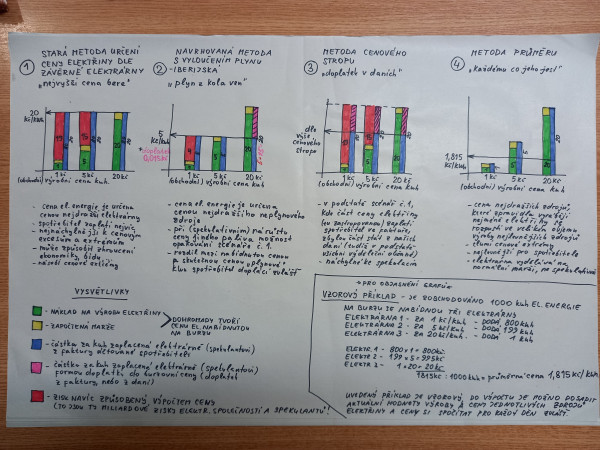 1 STARÁ METODA URČENÍ
CENY ELEKTŘINY DLE
ZÁVĚRNÉ ELEKTRÁRNY
„nejvyšší cena bere"
20
Kč/kWh
19
15
20
1
5
1Kč
5Kč
20Kč
(obchodní) výrobní cena kWh
- cena el. energie je určena
cenou nejdražší elektrárny
- spotřebitel zaplatí nejvíc
- nejnáchylnější k cenovým
excesům a extrémům
- může způsobit zhroucení
ekonomiky, bídu
- národí cenové extrémy
2 NAVRHOVANÁ METODA
S VYLOUČENÍM PLYNU
-IBERIJSKÁ
„plyn z kola ven"
5
Kč/kWh
+ doplatek
0,015Kč
1Kč
5Kč
20Kč
(obchodní) výrobní cena kWh
- cena el. energie je určena
cenou nejdražšího neplynového
zdroje
- při (spekulativním) nárůstu
ceny jiného paliva možnost
opakování scénáře č. 1
- rozdíl mezi nabídnutou cenou
a skutečnou cenou „plynové"
kWh spotřebitel doplácí zvlášť
3 METODA CENOVÉHO
STROPU
„doplatek v daních"
dle
výše
cenového
stropu
1Kč
5Kč
20Kč
(obchodní) výrobní cena kWh
- v podstatě scénář č. 1,
kdy část ceny elektřiny
(do zastropování) zaplatí
spotřebitel ve faktuře,
zbylou část stát z našich
daní (tudíž v podstatě
všichni výdělečně činní)
- náchylné ke spekulacím
4 METODA PRŮMĚRU
„každému co jeho jest"
1,815
Kč/kWh
1Kč
5Kč
20Kč
(obchodní) výrobní cena kWh
- cena nejdražších zdrojů,
které zpravidla vyrábějí
nejméně elektřiny, se
rozpustí ve velkém objemu
výroby nejlevnějších zdrojů
- tlumí cenové extrémy
- nejlevnější pro spotřebitele
- elektrárna vydělává na
normální marži, ne spekulativní
VYSVĚTLIVKY
- NÁKLAD NA VÝROBU ELEKTŘINY
- ZAPOČTENÁ MARŽE
DOHROMADY TVOŘÍ
CENU EL. NABÍDNUTOU
NA BURZU
- částka za kWh zaplacená elektrárně (spekulantovi)
z faktury účtované spotřebiteli
- částka za kWh zaplacená elektrárně (spekulantovi)
formou doplatku do burzovní ceny (doplatek
z faktury, nebo z daní)
- ZISK NAVÍC ZPŮSOBENÝ VÝPOČTEM CENY
(TO JSOU TY MILIARDOVÉ ZISKY ELEKTR. SPOLEČNOSTÍ A SPEKULANTŮ!)
PRO OBJASNĚNÍ GRAFŮ
VZOROVÝ PŘÍKLAD - JE ZOBCHODOVÁNO 1000 kWh EL. ENERGIE
NA BURZU SE NABÍDNOU TŘI ELEKTRÁRNY
ELEKTRÁRNA 1 - ZA 1 Kč/kWh - DODÁ 800 kWh
ELEKTRÁRNA 2 - ZA 5 Kč/kWh - DODÁ 199 kWh
ELEKTRÁRNA 3 - ZA 20 Kč/kWh. - DODÁ 1 kWh
ELEKTR. 1 - 800×1 = 800Kč
ELEKTR 2 - 199×5 = 995Kč
ELEKTR 3 - 1×20 = 20Kč
1815Kč : 1000kWh = průměrná cena 1,815 Kč/kWh
UVEDENÝ PŘÍKLAD JE VZOROVÝ, DO VÝPOČTU JE MOŽNO DOSADIT
AKTUÁLNÍ HODNOTY VÝROBY A CENY JEDNOTLIVÝCH ZDROJŮ
ELEKTŘINY A CENY SI SPOČÍTAT PRO KAŽDÝ DEN ZVLÁŠŤ